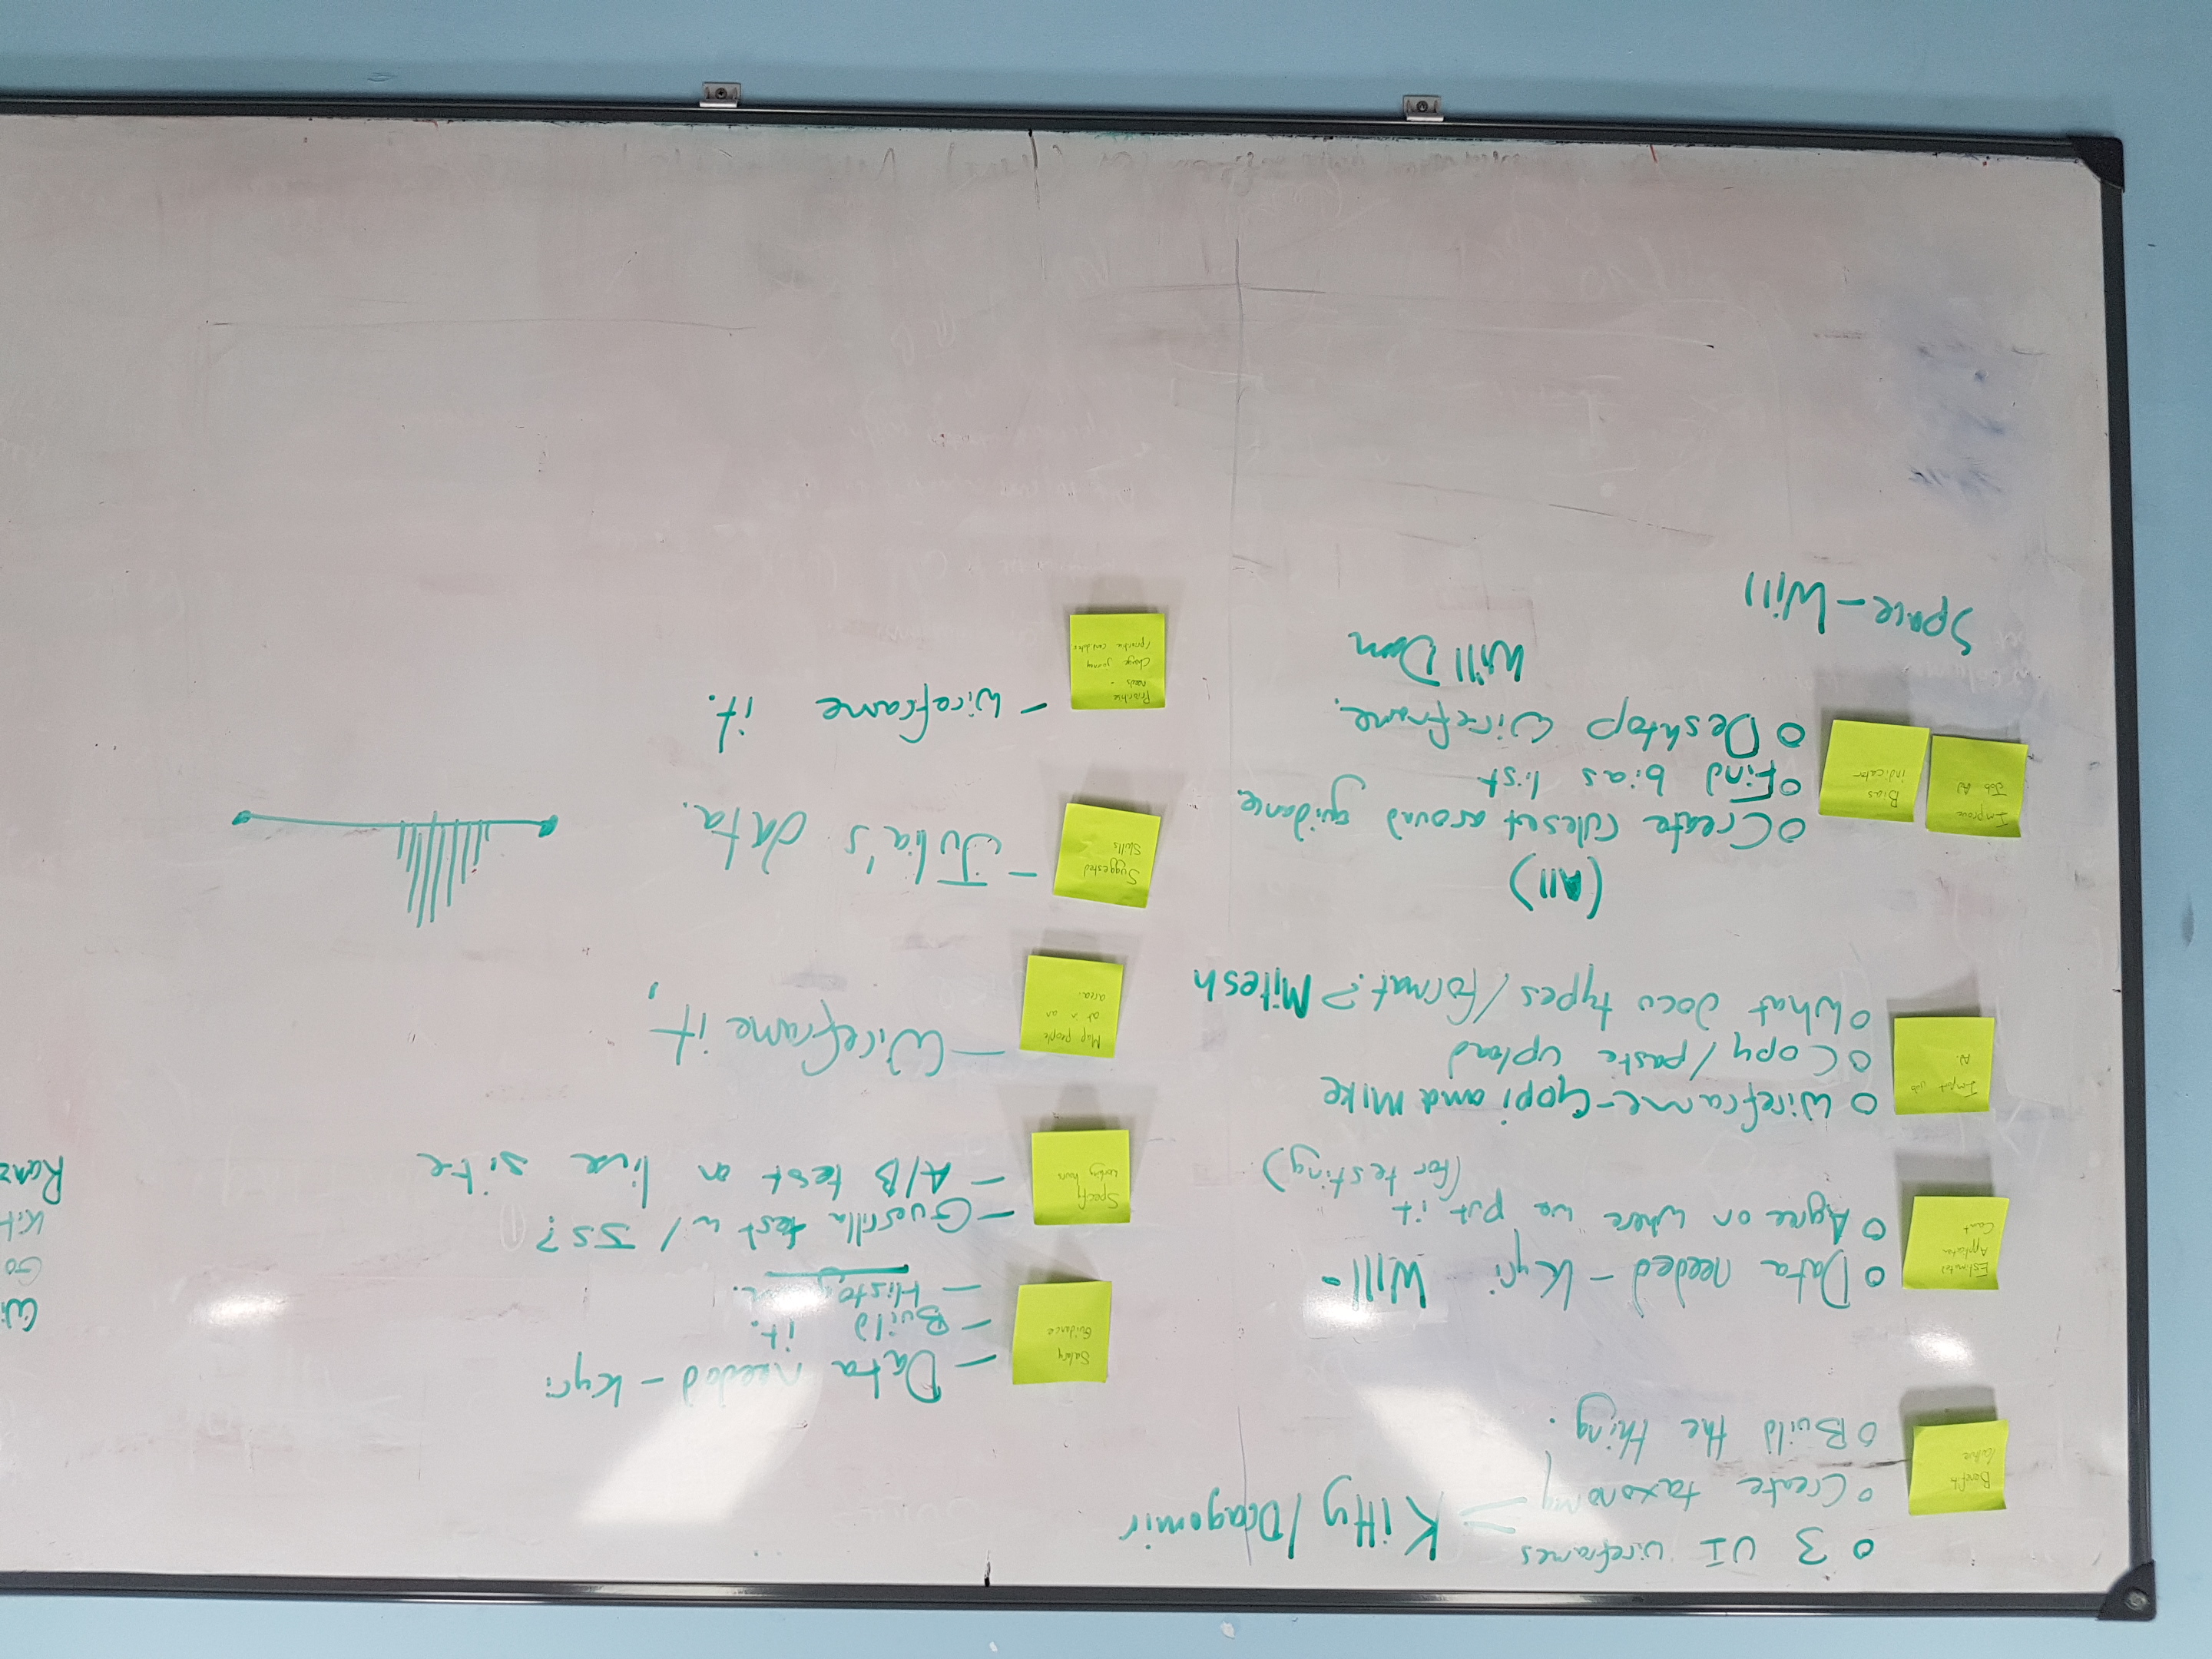 o 3 UI wireframes
Kitty / Dragomir
Benefits
/culture
o Create taxonomy
o Build the thing.
Estimated
Application
Count
o Data needed - Kyri Will -
o Agree on where we put it
(for testing)
Import Job
Ad.
o Wireframe - Gopi and Mike
o Copy/paste upload
o What docu types/format.? Mitesh
(All)
Improve
Job Ad
Bias
indicator
o Create ruleset around guidance.
o Find bias list
o Desktop wireframe.
Will Dom
Space - Will
Salary
Guidance
- Data needed - Kyri
- Build it.
- Histogram.
Specify
working hours
- Guerrilla test w/ JS?
- A/B test on live site
Map people
in an
area.
- Wireframe it,
Suggested
Skills
- Julia's data.
Prioritise
needs -
Change journey
/prioritise candidates
- wireframe it.
Wi
Go
Kit